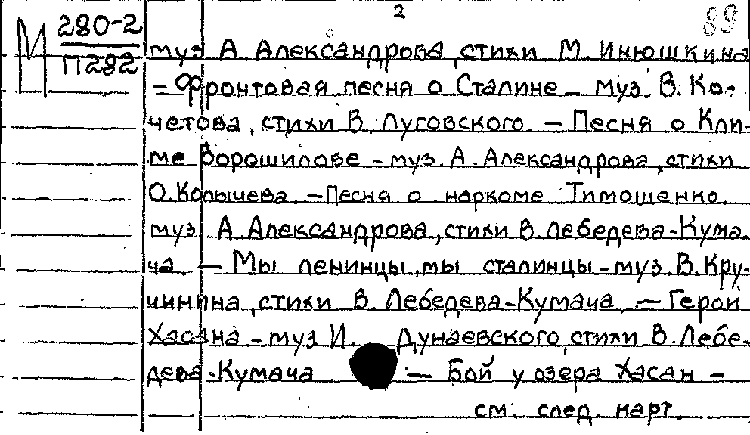 2
89
М 280-2
П282
муз А Александрова, стихи М. Инюшкина
- Фронтовая песня о Сталине - муз. В. Ко-
четова, стихи В. Луговского. - Песня о Кли-
ме Ворошилове - муз. А. Александрова, стихи
О. Колычева. - Песня о наркоме Тимошенко
муз. А Александрова, стихи В. Лебедева-Кума.
ча. - Мы ленинцы, мы сталинцы - муз. В. Кру-
чинина, стихи В. Лебедева-Кумача. - Герои
Хасана - муз И. Дунаевского, стихи В. Лебе-
дева-Кумача - Бой у озера Хасан -
см. след. карт.